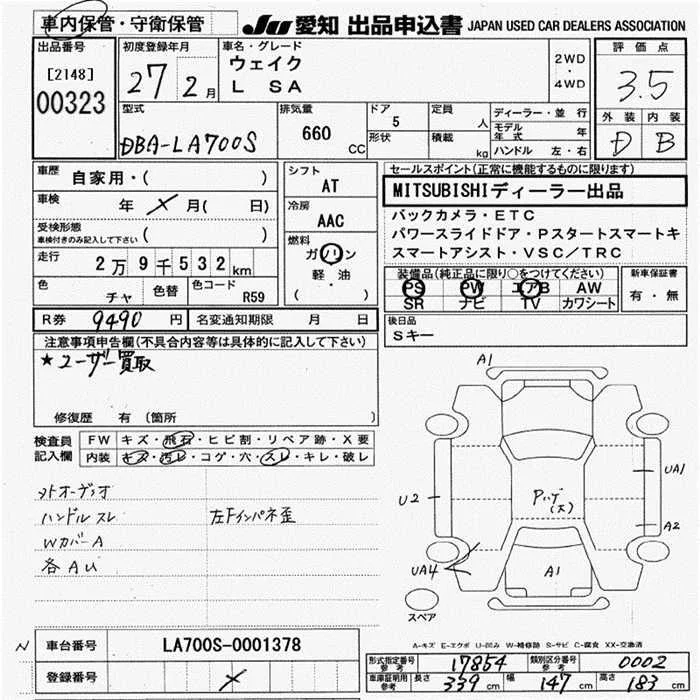 車内保管・守衛保管
JU 愛知 出品申込書 JAPAN USED CAR DEALERS ASSOCIATION
出品番号
[2148]
00323
初度登録年月
27 2月
車名・グレード
ウェイク
L SA
2WD
・
4WD
評価点
3.5
外装 内装
D B
型式
DBA-LA700S
排気量
660 CC
ドア
5
形状
定員
人
積載
kg
ディーラー・並行
モデル年式 年
ハンドル 左・右
車歴
自家用・( )
車検
年 メ 月( 日)
受検形態
車検付きのみ記入して下さい ( )
走行
2万9千532km
色
チャ
色替
色コード
R59
シフト
AT
冷房
AAC
燃料
ガソリン
軽・油
( )
セールスポイント(正常に機能するものに限ります)
MITSUBISHIディーラー出品
バックカメラ・ETC
パワースライドドア・Pスタートスマートキ
スマートアシスト・VSC/TRC
装備品(純正品に限り○をつけてください)
PS PW エアB AW
SR ナビ TV カワシート
新車保証書
有・無
R券 9490 円 名変通知期限 月 日
後日品
Sキー
注意事項申告欄(不具合内容等は具体的に記入して下さい)
★ユーザー買取
修復歴 有 (箇所 )
検査員
記入欄
FW キズ・飛石・ヒビ割・リペア跡・X要
内装 キズ・汚レ・コゲ・穴・スレ・キレ・破レ
メトオーディオ
ハンドルスレ 左Fインパネ歪
WカバーA
各AU
A1
UA1
U2
Pハゲ
(大)
A2
UA4
A1
スペア
A-キズ E-エクボ U-凹み W-補修跡 S-サビ C-腐食 XX-交換済
N 車台番号 LA700S-0001378
登録番号 メ
形式指定番号
参考
17854
類別区分番号
参考
0002
車庫証明用
参考
長さ 339cm 幅 147cm 高さ 183cm